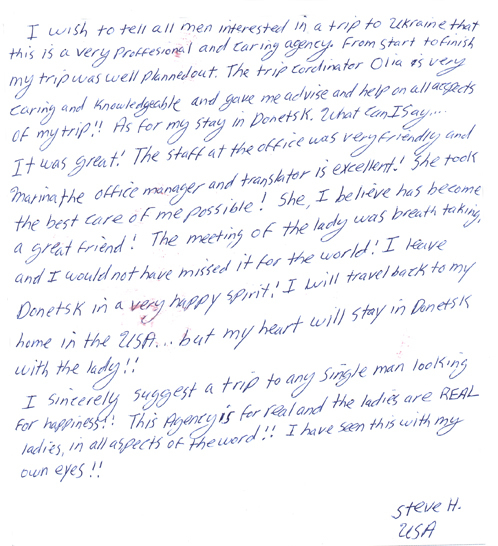 I wish to tell all men interested in a trip to Ukraine that
this is a very Proffesional and caring agency. From start to finish
my trip was well planned out. The trip cordinator Olia is very
caring and knowledgeable and gave me advise and help on all aspects
of my trip!! As for my stay in Donetsk. What can I say....
It was great! The staff at the office was very friendly and
Marina the office manager and translator is excellent! She took
the best care of me possible! She, I believe has become
a great friend! The meeting of the lady was breath taking,
and I would not have missed it for the world! I leave
Donetsk in a very happy spirit! I will travel back to my
home in the USA... but my heart will stay in Donetsk
with the lady!!
I sincerely suggest a trip to any single man looking
for happiness!! This Agency is for real and the ladies are REAL
ladies, in all aspects of the word!! I have seen this with my
own eyes!!
Steve H.
USA